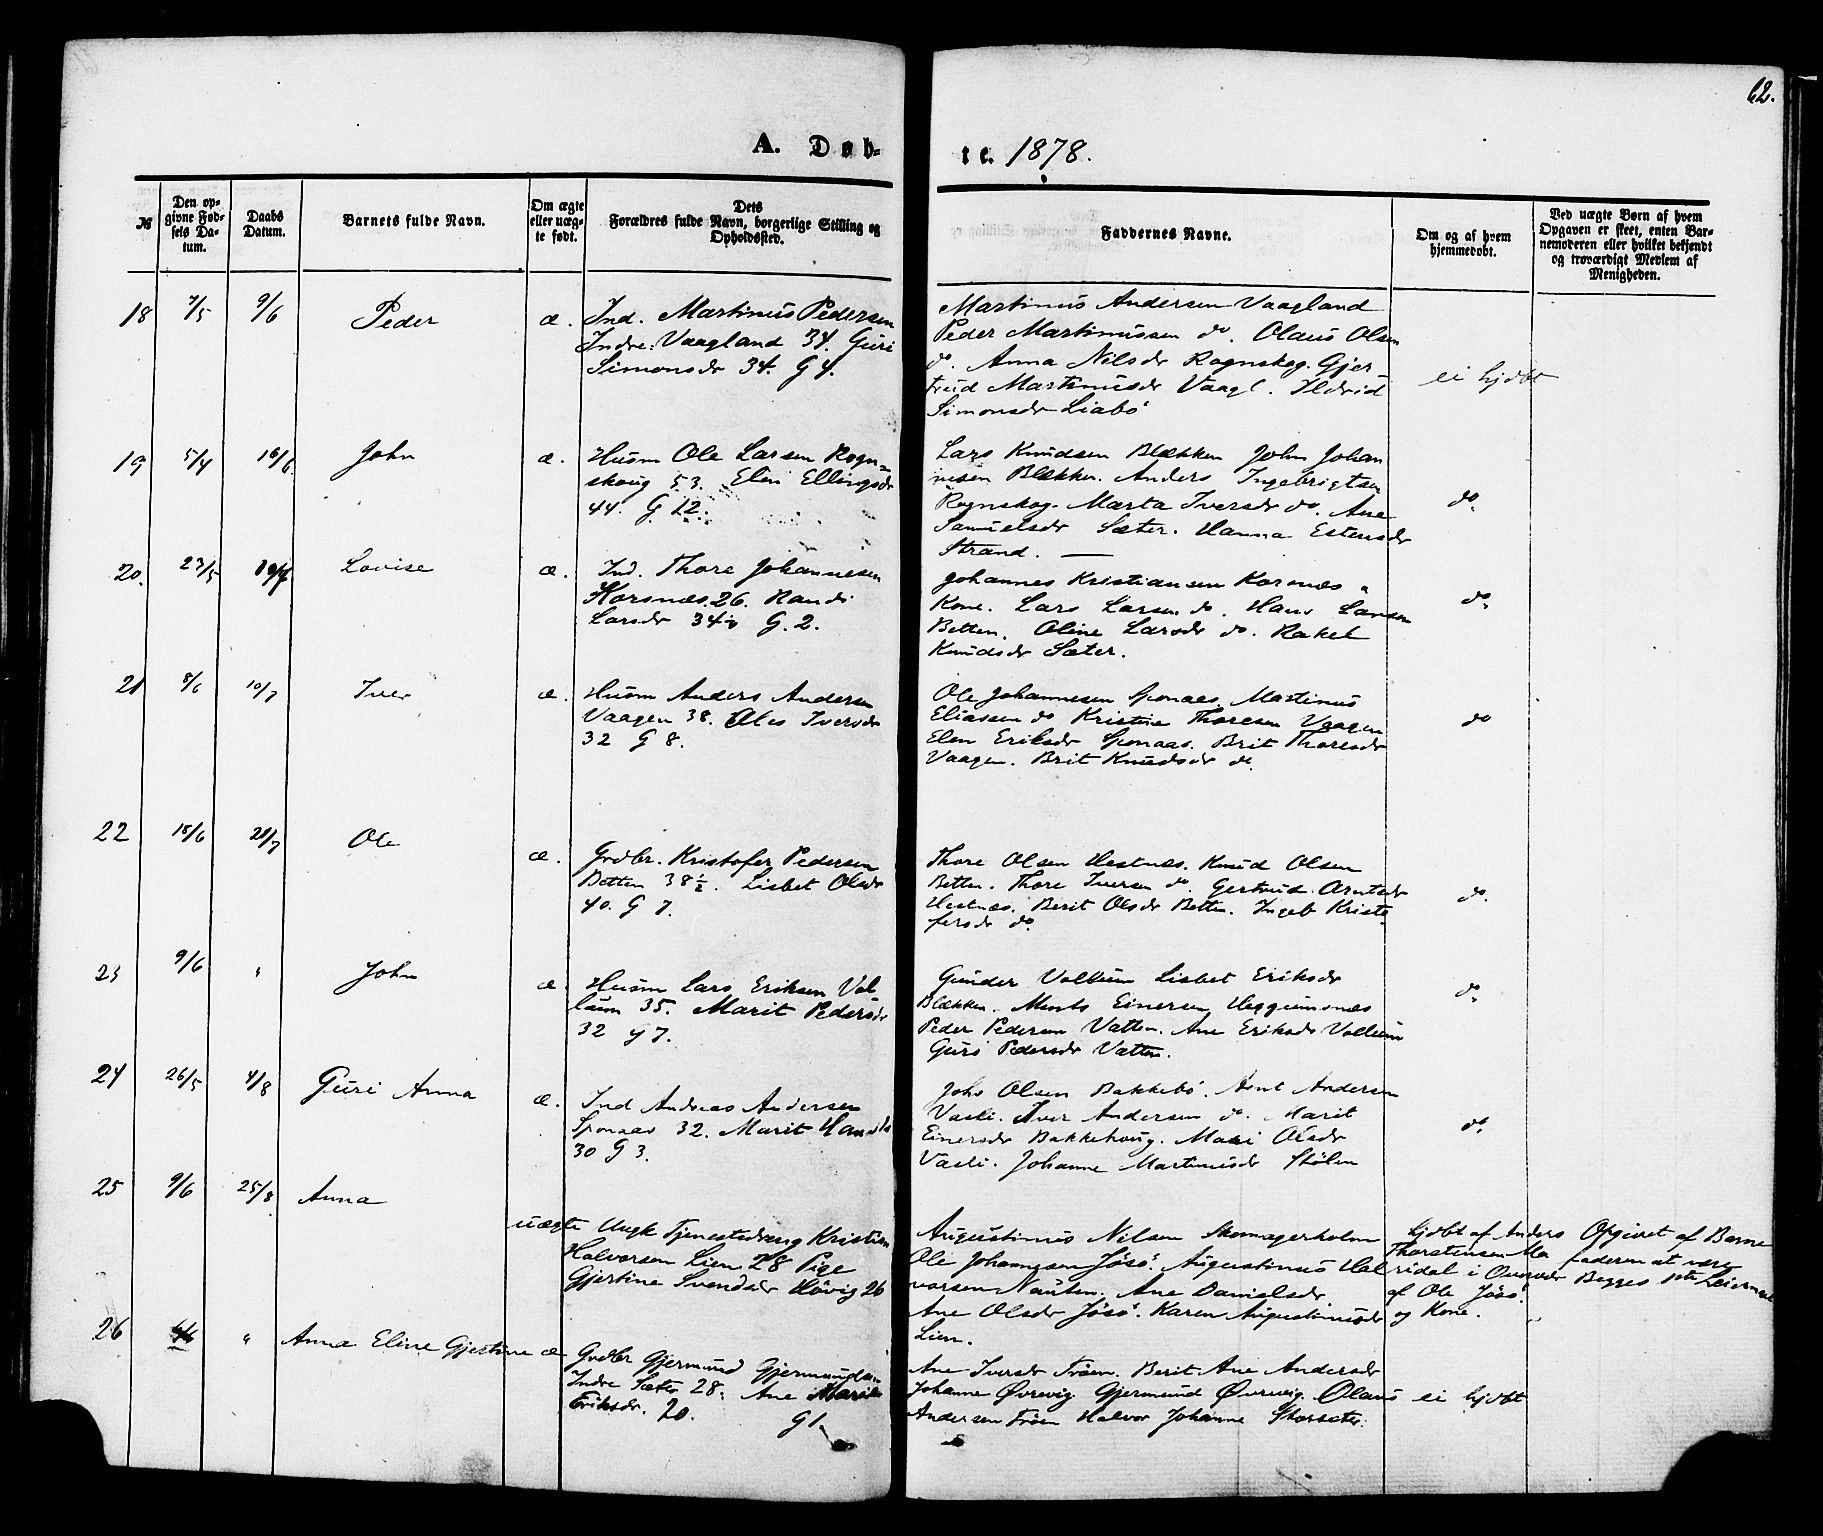 62.
A. Døb-
te. 1878.
№
Den op-
givne Fød-
sels Da-
tum.
Daabs
Datum.
Barnets fulde Navn.
Om ægte
eller uæg-
te født.
Dets
Forældres fulde Navn, borgerlige Stilling og
Opholdssted.
Faddernes Navne.
Om og af hvem
hjemmedøbt.
Ved uægte Børn af hvem
Opgaven er skeet, enten Bar-
nemoderen eller hvilket bekjendt
og troværdigt Medlem af
Menigheden.
18 7/5 9/6 Peder æ.
Ind. Martinus Pedersen
Indre Vaagland 34. Guri
Simonsdr 34. G 4.
Martinus Andersen Vaagland
Peder Martinussen do. Olaus Olsen
do. Anna Nilsdr Rognskog. Gjer-
trud Martinusdr Vaagl. Ildrid
Simonsdr Liabö
ei hjdbt
19 5/4 16/6 John æ.
Husm Ole Larsen Rogn-
skoug 53. Elen Ellingsdr
44. G 12.
Lars Knudsen Blækken John Johan
nesen Blækken. Anders Ingebrigtsen
Rognskog. Marta Iversdr do. Ane
Samuelsdr Sæter. Hanna Estensdr
Strand. —
do.
20. 23/5 Lovise æ.
Ind. Thore Johannesen
Korsnæs. 26. Randi
Larsdr 34 G. 2.
Johannes Kristiansen Korsnæs "
Kone. Lars Larsen do. Hans Larsen
Betten. Oline Larsdr do. Rakel
Knudsdr Sæter.
do.
21 8/6 10/7 Iver æ.
Husm Anders Andersen
Vaagen 38. Ales Iversdr
32 G 8.
Ole Johannesen Sponaas. Martinus
Eliassen do Kristine Thoresen Vaagen
Elen Eriksdr Sponaas. Brit Thoresdr
Vaagen. Brit Knudsdr do.
do
22 18/6 21/7 Ole æ.
Grdbr. Kristofer Pedersen
Betten 38 1/2. Lisbet Olsdr
40. G 7.
Thore Olsen Hestnæs. Knud Olsen
Betten. Thore Iversen do. Gertrud Arntsdr
Hestnæs. Berit Olsdr Betten. Ingeb Kristo
fersdr do.
do.
23 9/6 " John æ.
Husm Lars Eriksen Vol
lum 35. Marit Pedersdr
32 G 7.
Gunder Vollum Lisbet Eriksdr
Blækken. Ments Einersen Heggumsnæs
Peder Pedersen Vatten. Ane Eriksdr Vollum
Guri Pedersdr Vatten.
do.
24 26/5 4/8 Guri Anna æ.
Ind Andreas Andersen
Sponaas 32. Marit Hansdr
30 G 3.
Johs Olsen Bakkebö. Arnt Andersen
Vasli. Iver Andersen do. Marit
Einersdr Bakkehoug. Mari Olsdr
Vasli. Johanne Martinusdr Stölen
do.
25 9/6 25/8 Anna uægte
Ungk Tjenestedreng Kristian
Halvorsen Lien 28 Pige
Gjertine Svendsdr Hövig 26
Augustinus Nilsen Skomagerholm
Ole Johannesen Jösö. Augustinus Hal
vorsen Nausten. Ane Danielsdr
Ane Olsdr Jösö. Karen Augustinusdr
Lien.
hjdbt af Anders
Thorstensen Mo
ridal i
af Ole Jösö
og Kone.
Opgivet af Barne
faderen at være
Begges 1ste Leiermaal
26 " Anna Eline Gjertine æ
Grdbr Gjermund Gjermundsen
Indre Sæter 28. Ane Marie
Eriksdr. 20.
G 1.
Ane Iversdr Tröen. Berit Ane Andersdr
Johanne Övrevig Gjermund Övrevig. Olaus
Andersen Tröen Halvor Johanne Storsæter.
ei hjdbt